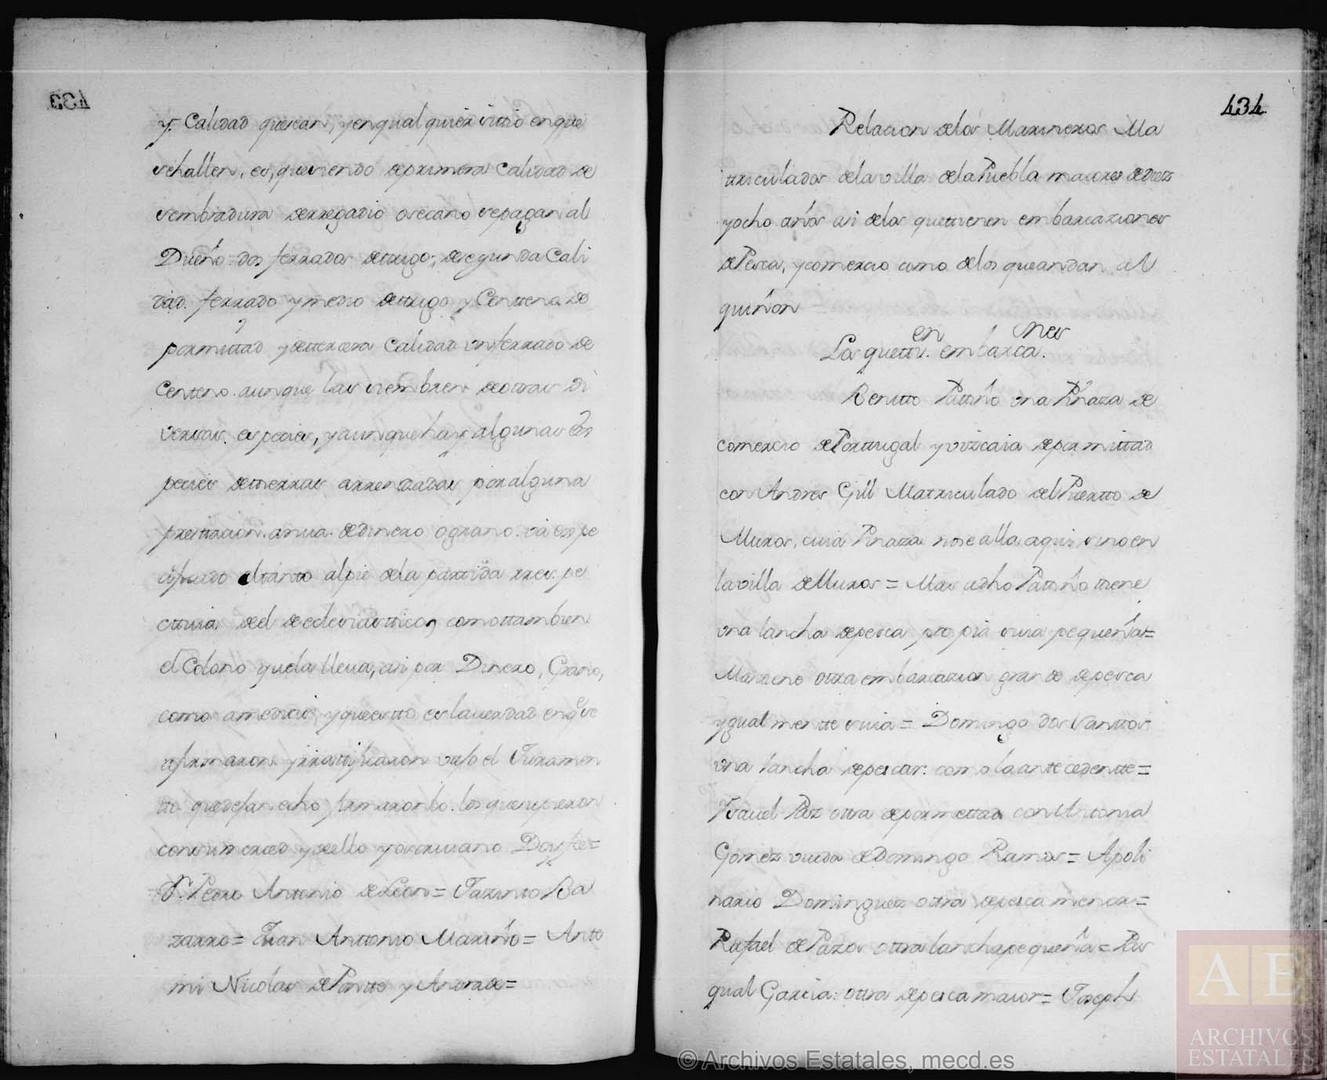 y Calidad quesean, yenqualquier sittio enque
sehallen, es, quesiendo deprimera Calidad de
sembradura deregadio osecano sepagan al
Dueño dos ferrados detrigo, desegunda Cali
dad ferrado ymedio detrigo y Centeno de
pormittad ydettercera Calidad unferrado de
Centeno aunque las siembren deottras di
versas especies, yaunquehay algunas Es
pecies detierras arrendadas poralguna
prestacion anua dedinero ograno va espe
cificado eltanto alpie dela partida res pe
ctiva del deeclesiasttico, comottambien
el Colono quela lleva, asi por Dinero, Grano,
como amedias, yqueesto es laverdad enqe se
afirmaron yrratificaron vajo el Juramen
to quedejan echo firmaronlo los quesupieron
consumerced ydeello yoescrivano Doy fee=
Dn. Pedro Antonio deLeon= Jazinto Ba
zarro= Juan Anttonio Mariño= Ante
mi Nicolas dePartto y Andrade=
434
Relacion delos Marineros Ma
triculados delavilla delaPuebla maiores dediez
yocho años asi delos quettienen embarcaziones
dePesca, ycomercio como delos queandan al
quiñon
Los quetien en embarcanes.
Benitto Pattiño una Pinaza de
comercio dePorttugal yvizcaia depormittad
con Andres Gill Matriculado delPuertto de
Muros, cuia Pinaza nosealla aqui, sinoen
lavilla deMuros= Mas adho Patiño tiene
una lancha depesca propia suia pequeña=
Mas tieno ottra embarcazion grande depesca
ygualmentte suia= Domingo dos Santtos
una lancha depescar como laantecedentte=
Ysavel Paz ottra depormettad conAntonia
Gomez viuda deDomingo Ramos= Apoli
nario Dominguez ottra depesca menor=
Rafael dePazos ottra lanchapequeña= Pas
qual Garcia: ottra depesca maior= Joseph
© Archivos Estatales, mecd.es
AE
ARCHIVOS
ESTATALES